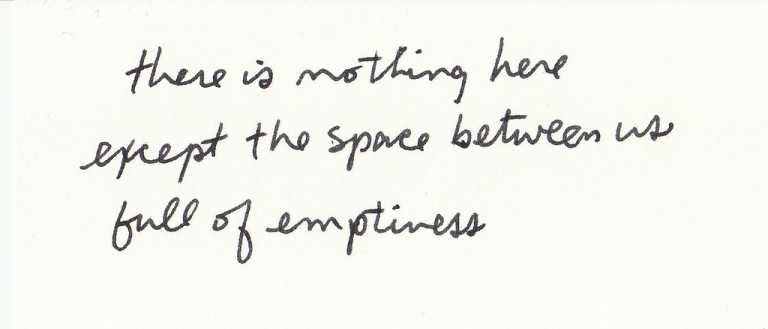 there is nothing here
except the space between us
full of emptiness